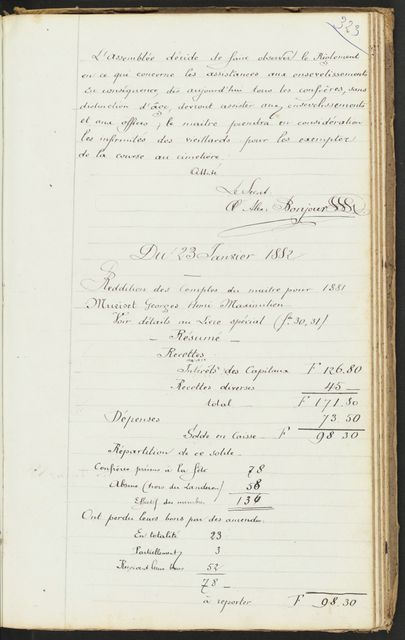 323
L'assemblée décide de faire observer le Règlement
en ce qui concerne les assistances aux ensevelissements
En conséquence, dès aujourd'hui tous les confrères, sans
distinction d'âge, devront assister aux ensevelissements
et aux offices ; le maître prendra en considération
les infirmités des vieillards pour les exempter
de la course au cimetière.
Attesté
Le Secrét.
Cl Alex. Bonjour
Du 23 Janvier 1882
Reddition des Comptes du maître pour 1881
Muriset Georges Henri Maximilien.
Voir détails au Livre spécial (fo. 30, 31).
— Résumé —
Recettes
Intérêts des Capitaux F 126.80
Recettes diverses 45 —
total F 171.80
Dépenses 73.50
Solde en Caisse — F 98.30
Répartition de ce solde —
Confrères présents à la fête 78
Absents (hors du Landeron) 56
Effectif des membres 134
Ont perdu leurs bons par des amendes.
En totalité 23
Partiellement 3
52
78 —
à reporter F 98.30